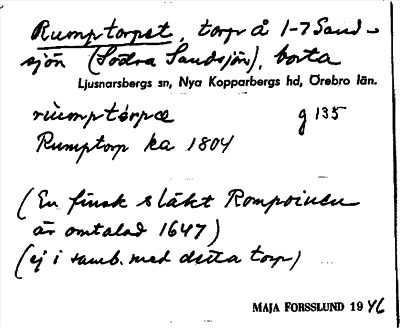 Rumptorpet, torp å 1-7 Sand-
sjön (Södra Sandsjön), borta
Ljusnarsbergs sn, Nya Kopparbergs hd, Örebro län.
rùmptórpæ g 135
Rumptorp ka 1804
(En finsk släkt Rompoinen
är omtalad 1647)
(ej i samb. med detta torp)
MAJA FORSSLUND 1946